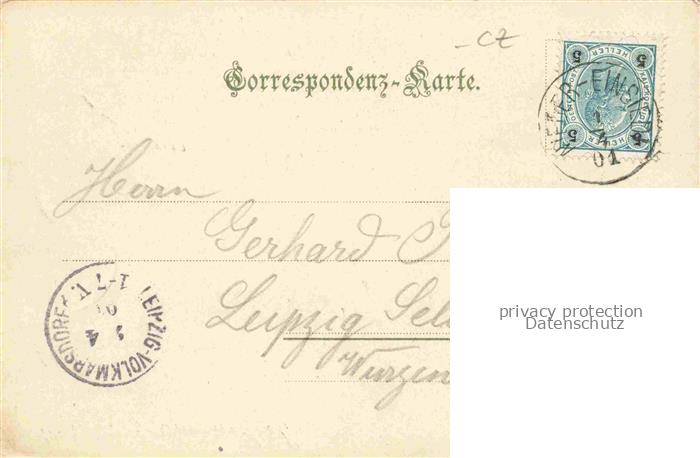 - CZ
Correspondenz-Karte.
5 5
HELLER HELLER
5 5
1
4
01
Herrn
Gerhard
Leipzig
Wurzen
LEIPZIG-VOLKMARSDORF
1-7 V.
01
4
privacy protection
Datenschutz